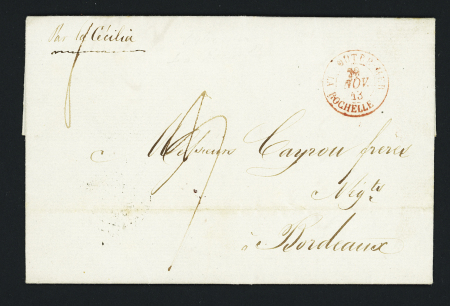 Par Cécilia
NOV.
43
ROCHELLE
Messieurs Cayrou frères
Négts
à Bordeaux